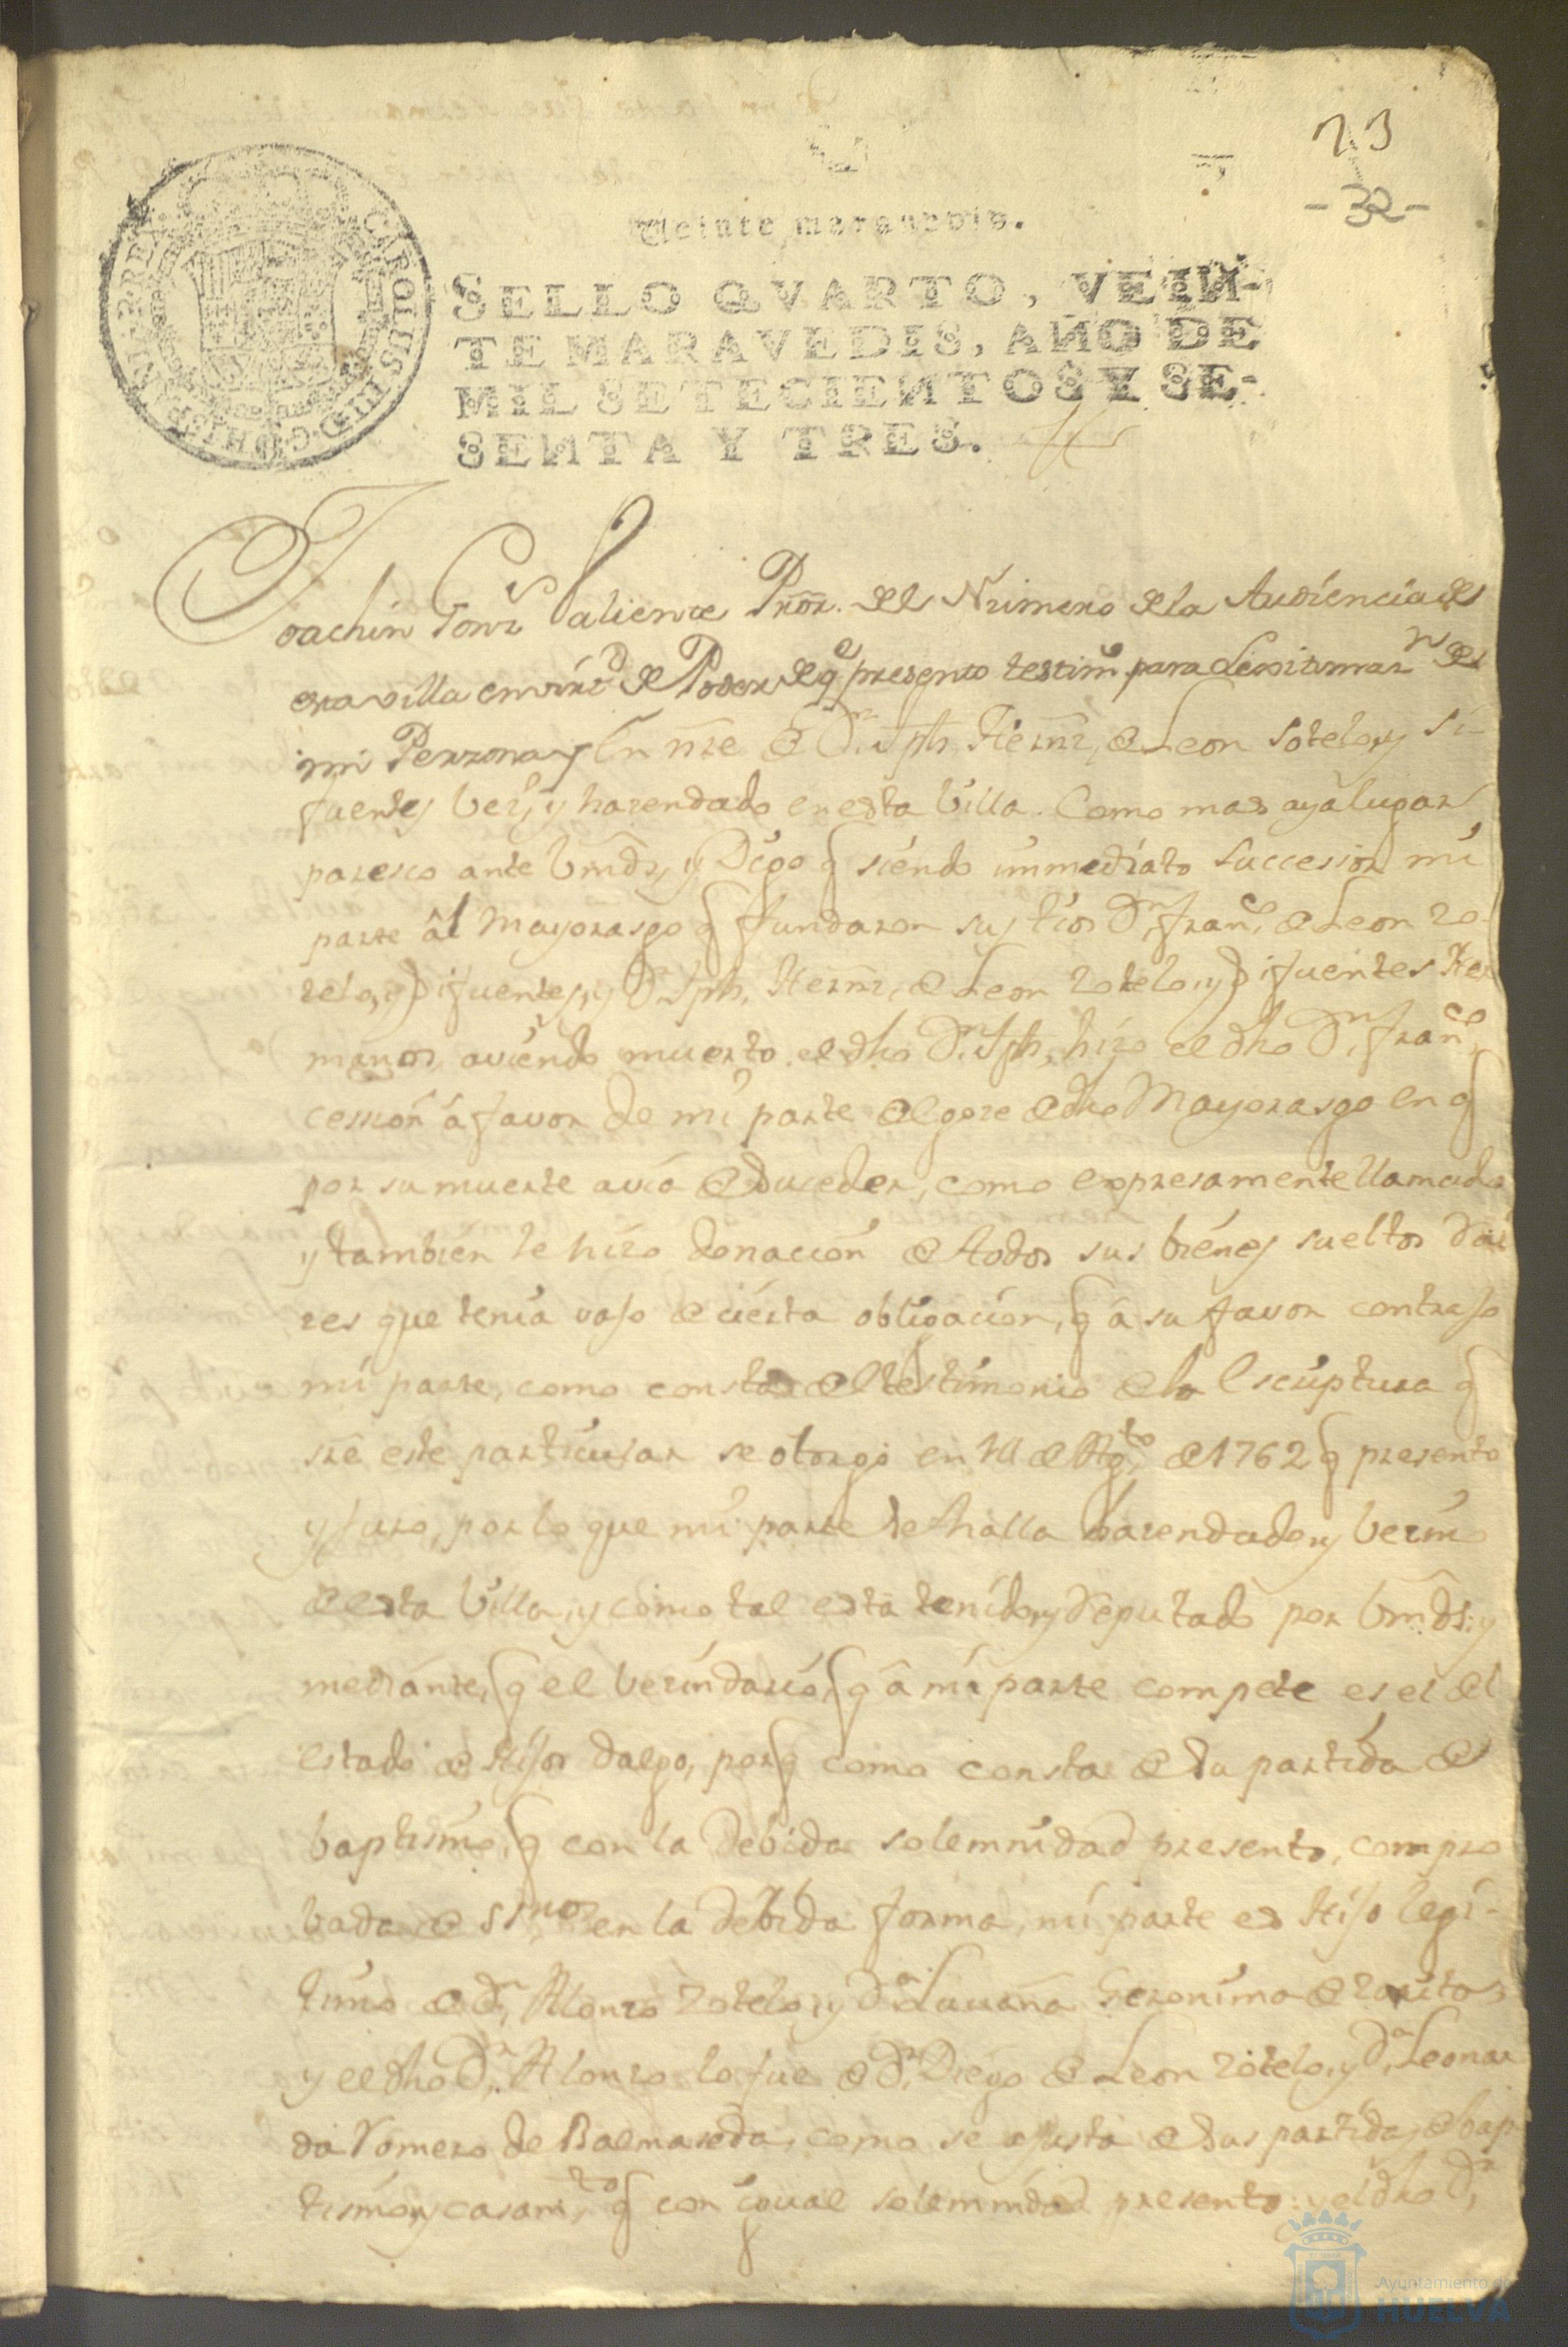 23
-32-
Veinte maravedis.
SELLO QVARTO, VEIN-
TE MARAVEDIS, AÑO DE
MIL SETECIENTOS Y SE-
SENTA Y TRES.
CAROLUS III D G HISPANIAR REX
Joachin Valiente Pror. del Número de la Audiencia de
esta villa en virtd. de Poder de q presento testim para Lexitimar
mi Perzona y En nre de Dn. Jph. Hernz, de Leon Sotelo, y Si-
fuentes Vezº, y hazendado en esta Villa. Como mas aya lugar
paresco ante Vmds, y Digo q siendo immediato Successor mi
parte al Mayorasgo q fundaron sus tios Dn. Franco. de Leon Zo-
telo, y Sifuentes, y Dn. Jph. Hernz, de Leon Zotelo, y Sifuentes Her
manos, aviendo muerto el dho Dn. Jph, hizo el dho Dn. Franco.
cession á favor de mi parte del goze de dho Mayorasgo en q
por su muerte avia de suceder, como expresamente llamado
y tambien le hizo donacion de todos sus bienes sueltos
res que tenia vajo de cierta obligacion, q á su favor contrajo
mi parte, como consta del testimonio de la Escriptura q
sre este particular se otorgó en de Agto. de 1762 q presento
y juro, por lo que mi parte se halla hazendado, y Vezino
de esta Villa, y como tal esta tenido, y Reputado por Vmds. y
mediante, q el Vezindario, q á mi parte compete es el del
estado de Hijos dalgo, porq como consta de su partida de
baptismo, q con la debida solemnidad presento, compro
bada de ssnos en la debida forma, mi parte es Hijo legi-
timo de Dn. Alonzo Zotelo, y Da. Luciana Geronima de
y el dho Dn. Alonzo lo fue de Dn. Diego de Leon Zotelo, y Da. Leonar
da Romero de Balmaseda, como se ajusta de sus partidas de bap
tismo, y casamto. q con igual solemnidad presento: y el dho Dn.
Ayuntamiento de
HUELVA